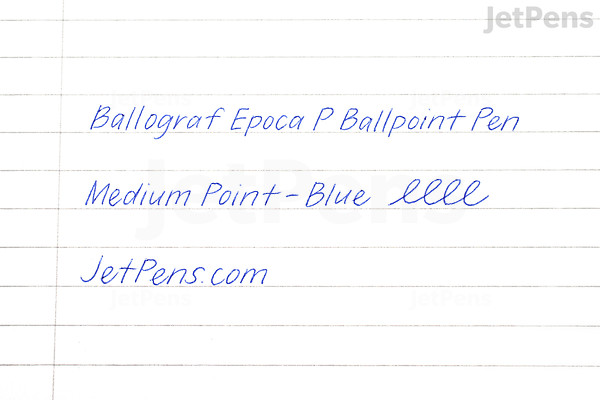 JetPens
Ballograf Epoca P Ballpoint Pen
Medium Point - Blue
JetPens.com